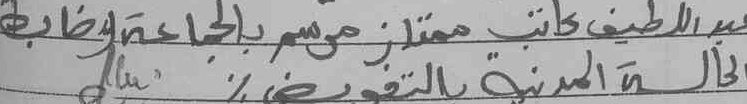 عبد اللطيف كاتب ممتاز مرسم بالجماعة وضابط
الحالة المدنية بالتفويض ٪